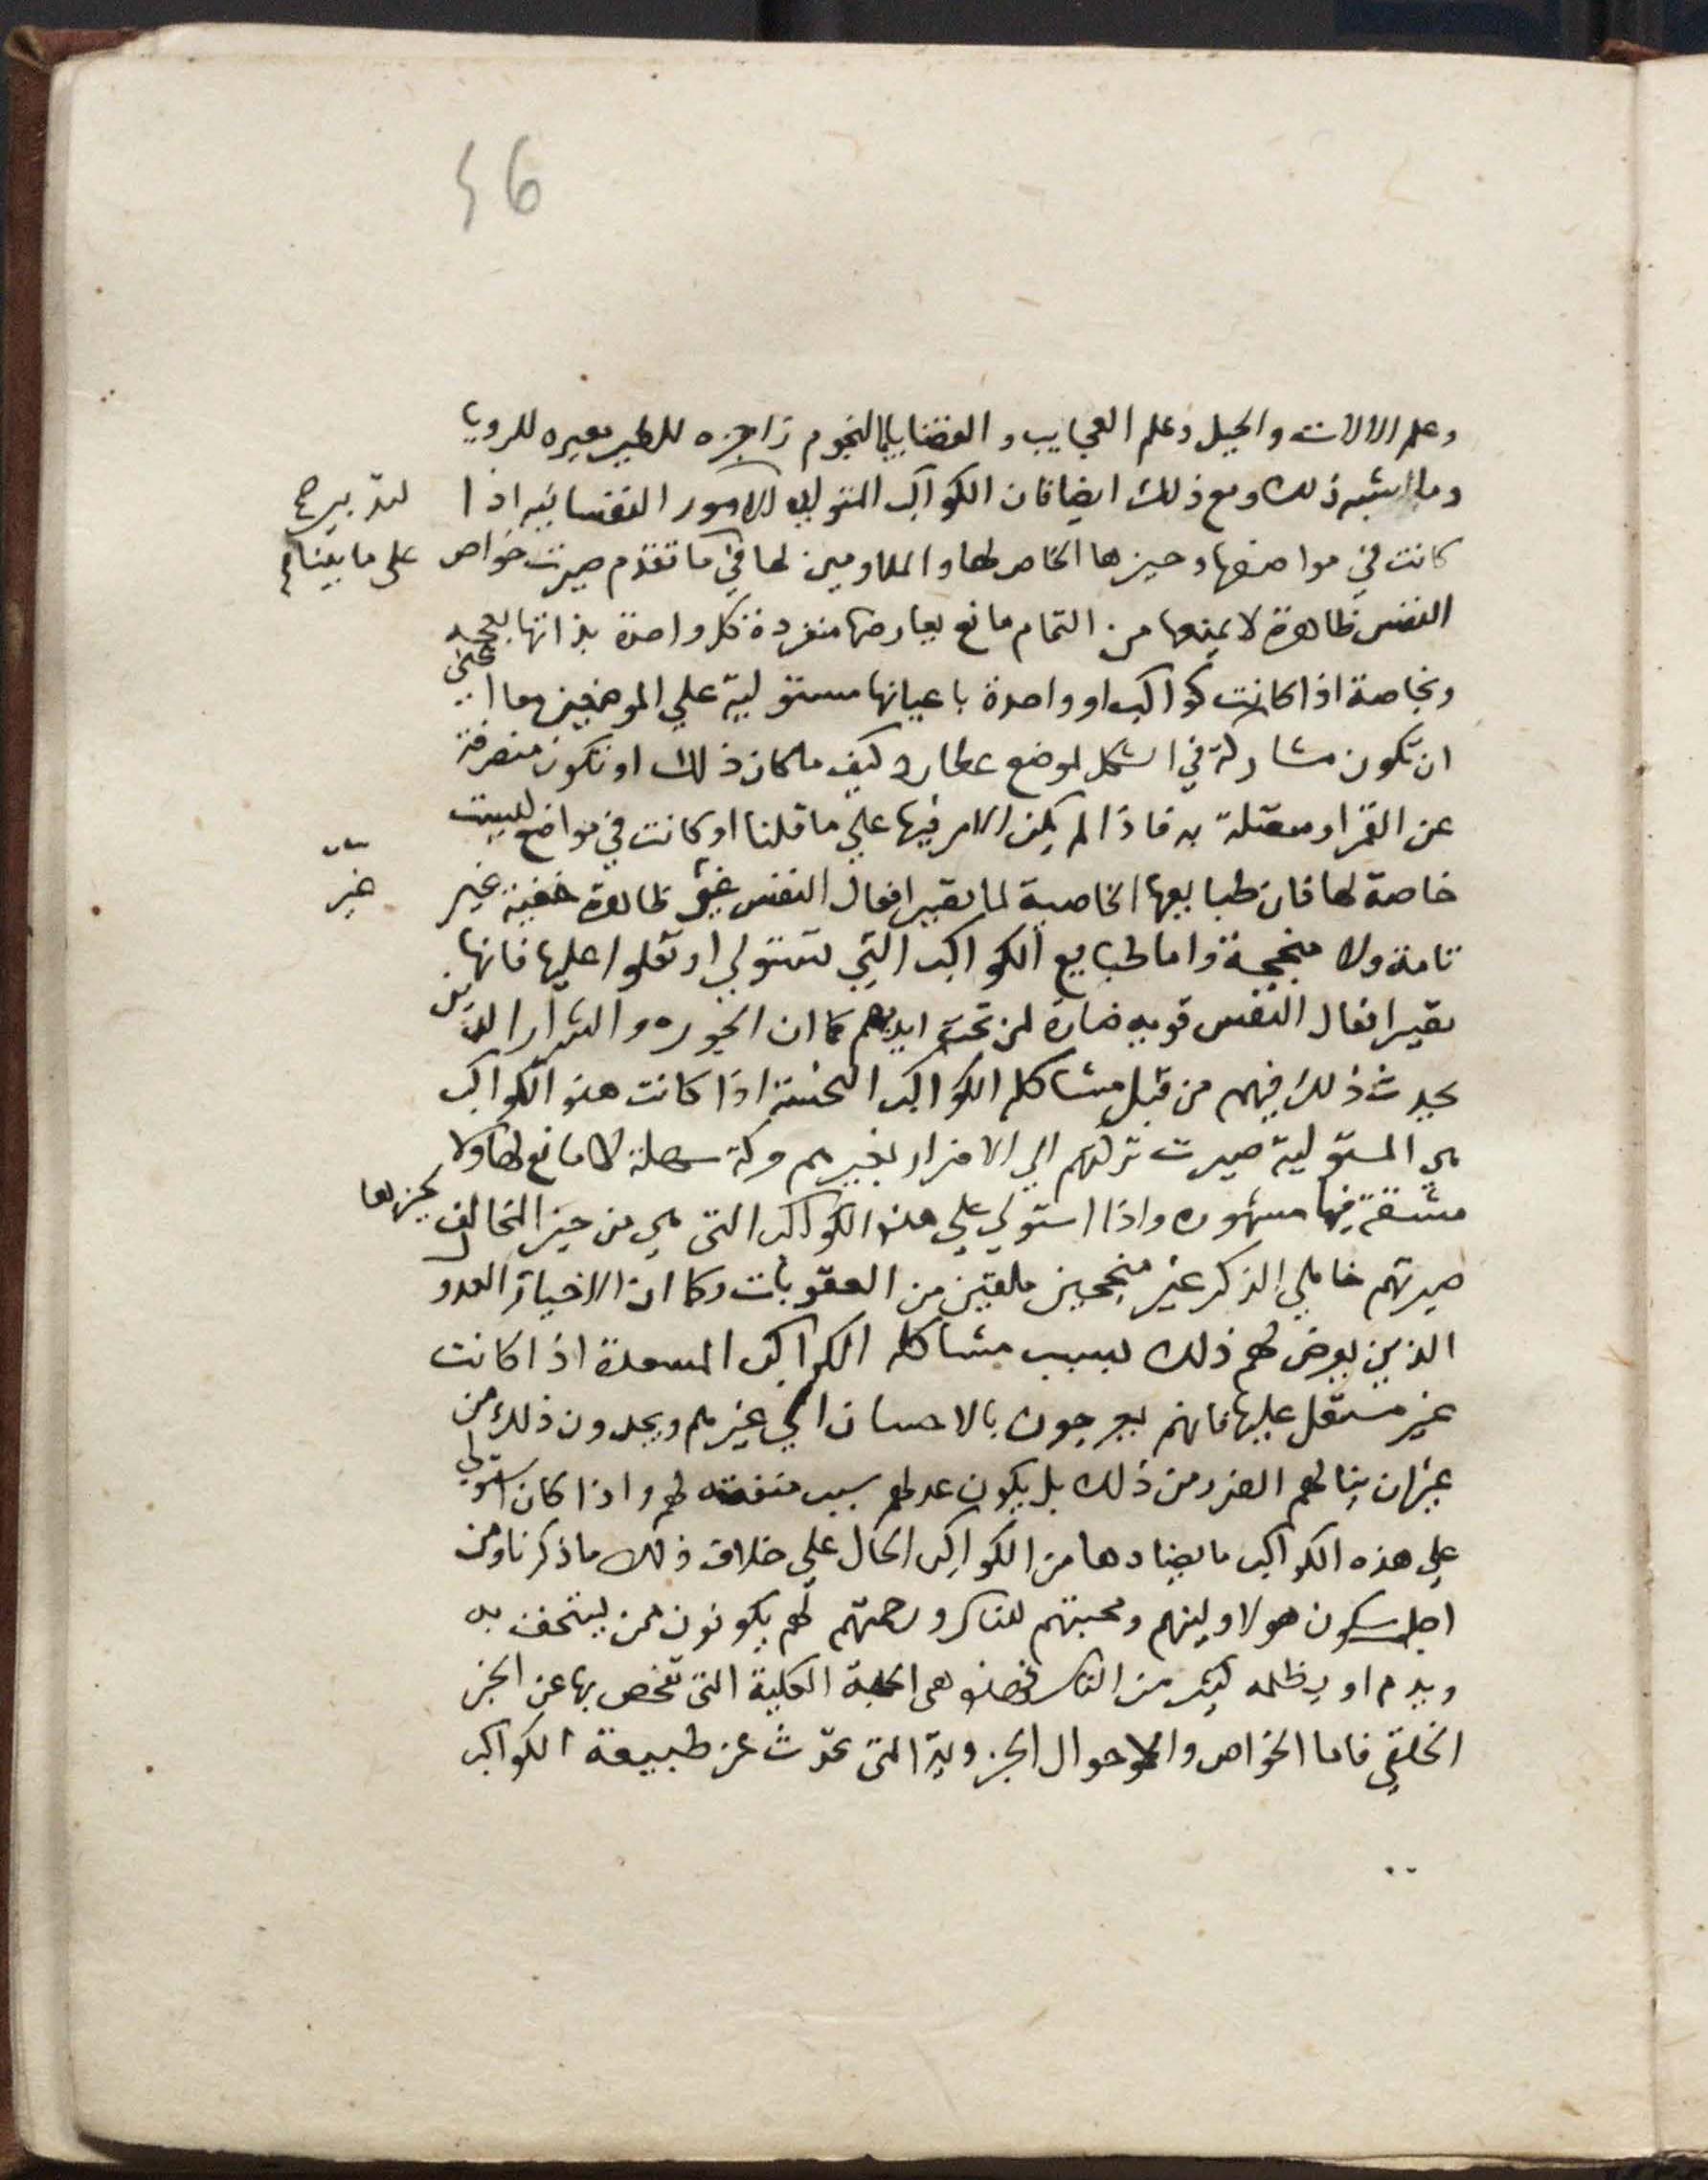 46
وعلم الالات والحيل وعلم العجايب والقضايا بالنجوم زاجره للطير معبره للرويا
وما اشبه ذلك ومع ذلك ايضا فان الكواكب المتوليه للامور النفسانيه اذا
لتدبير
كانت في مواضعها وحيزها الخاص لها والملاومين لها في ما تقدم صيرت خواص
على ما بينا
النفس ظاهرة لا يمنعها من التمام مانع يعارضها منفردة كل واحدة بذاتها
وبخاصة اذا كانت كواكب او واحدة باعيانها مستولية علي الموضعين معا اعني
ان تكون مشاركة في الشكل لموضع عطارد كيف ما كان ذلك او تكون منصرفة
عن القمر او متصلة به فاذا لم يكن الامر فيها علي ما قلنا او كانت في مواضع ليست
خاصة لها فان طبايعها الخاصية لما يصير افعال النفس غير ظاهرة خفية غير
غير
تامة ولا منجحة واما طبايع الكواكب التي تستولي او تعلوا عليها فانها
تصير افعال النفس قويه ضارة لمن تحت ايديهم كما ان الجوره والشرار الذين
يحدث ذلك فيهم من قبل مشاكله الكواكب النحسة اذا كانت هذه الكواكب
هي المستولية صيرت حركتهم الي الاضرار بغيرهم حركة سهلة لا مانع لها ولا
مشقة فيها مشهوره واذا استولي علي هذه الكواكب التي هي من حيز المخالف لحيزها
صيرتهم خاملي الذكر غير منجحين ملقين من العقوبات وكما ان الاخيار العدو
الذين يعرض لهم ذلك بسبب مشاكله الكواكب المسعدة اذا كانت
غير مستعل عليها فانهم يفرحون بالاحسان الي غيرهم ويحمدون ذلك من
غير ان ينالهم الضرر من ذلك بل يكون عدلهم سبب منفعته لهم واذا كان استولي
علي هذه الكواكب ما يضادها من الكواكب الحال علي خلاف ذلك ما ذكرنا ومن
اجل سكون هولا ولينهم ومحبتهم للناس ورحمتهم لهم يكونون ممن يستخف به
ويذم او يظلمه كثير من الناس فهذه هي الجهة الكلية التي تفحص بها عن الخبر
الخلقي فاما الخواص والاحوال الجزوية التي تحدث عن طبيعة الكواكب